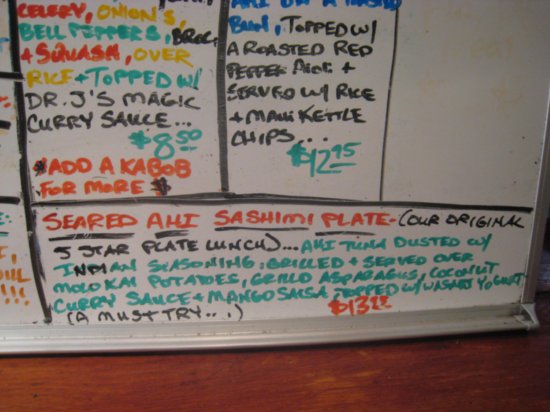 CELERY, ONION'S,
BELL PEPPERS, BROC
+ SQUASH, OVER
RICE + TOPPED W/
DR. J'S MAGIC
CURRY SAUCE...
$8.50
$ADD A KABOB
FOR MORE $
AHI ON A
BUN, TOPPED W/
A ROASTED RED
PEPPER AIOLI +
SERVED W/ RICE
+ MAUI KETTLE
CHIPS...
$12.95
SEARED AHI SASHIMI PLATE - (OUR ORIGINAL
5 STAR PLATE LUNCH)... AHI TUNA DUSTED W/
INDIAN SEASONING, GRILLED + SERVED OVER
MOLOKAI POTATOES, GRILLD ASPARAGUS, COCONUT
CURRY SAUCE + MANGO SALSA TOPPED W/ WASABI YOGURT
(A MUST TRY...)
!!!